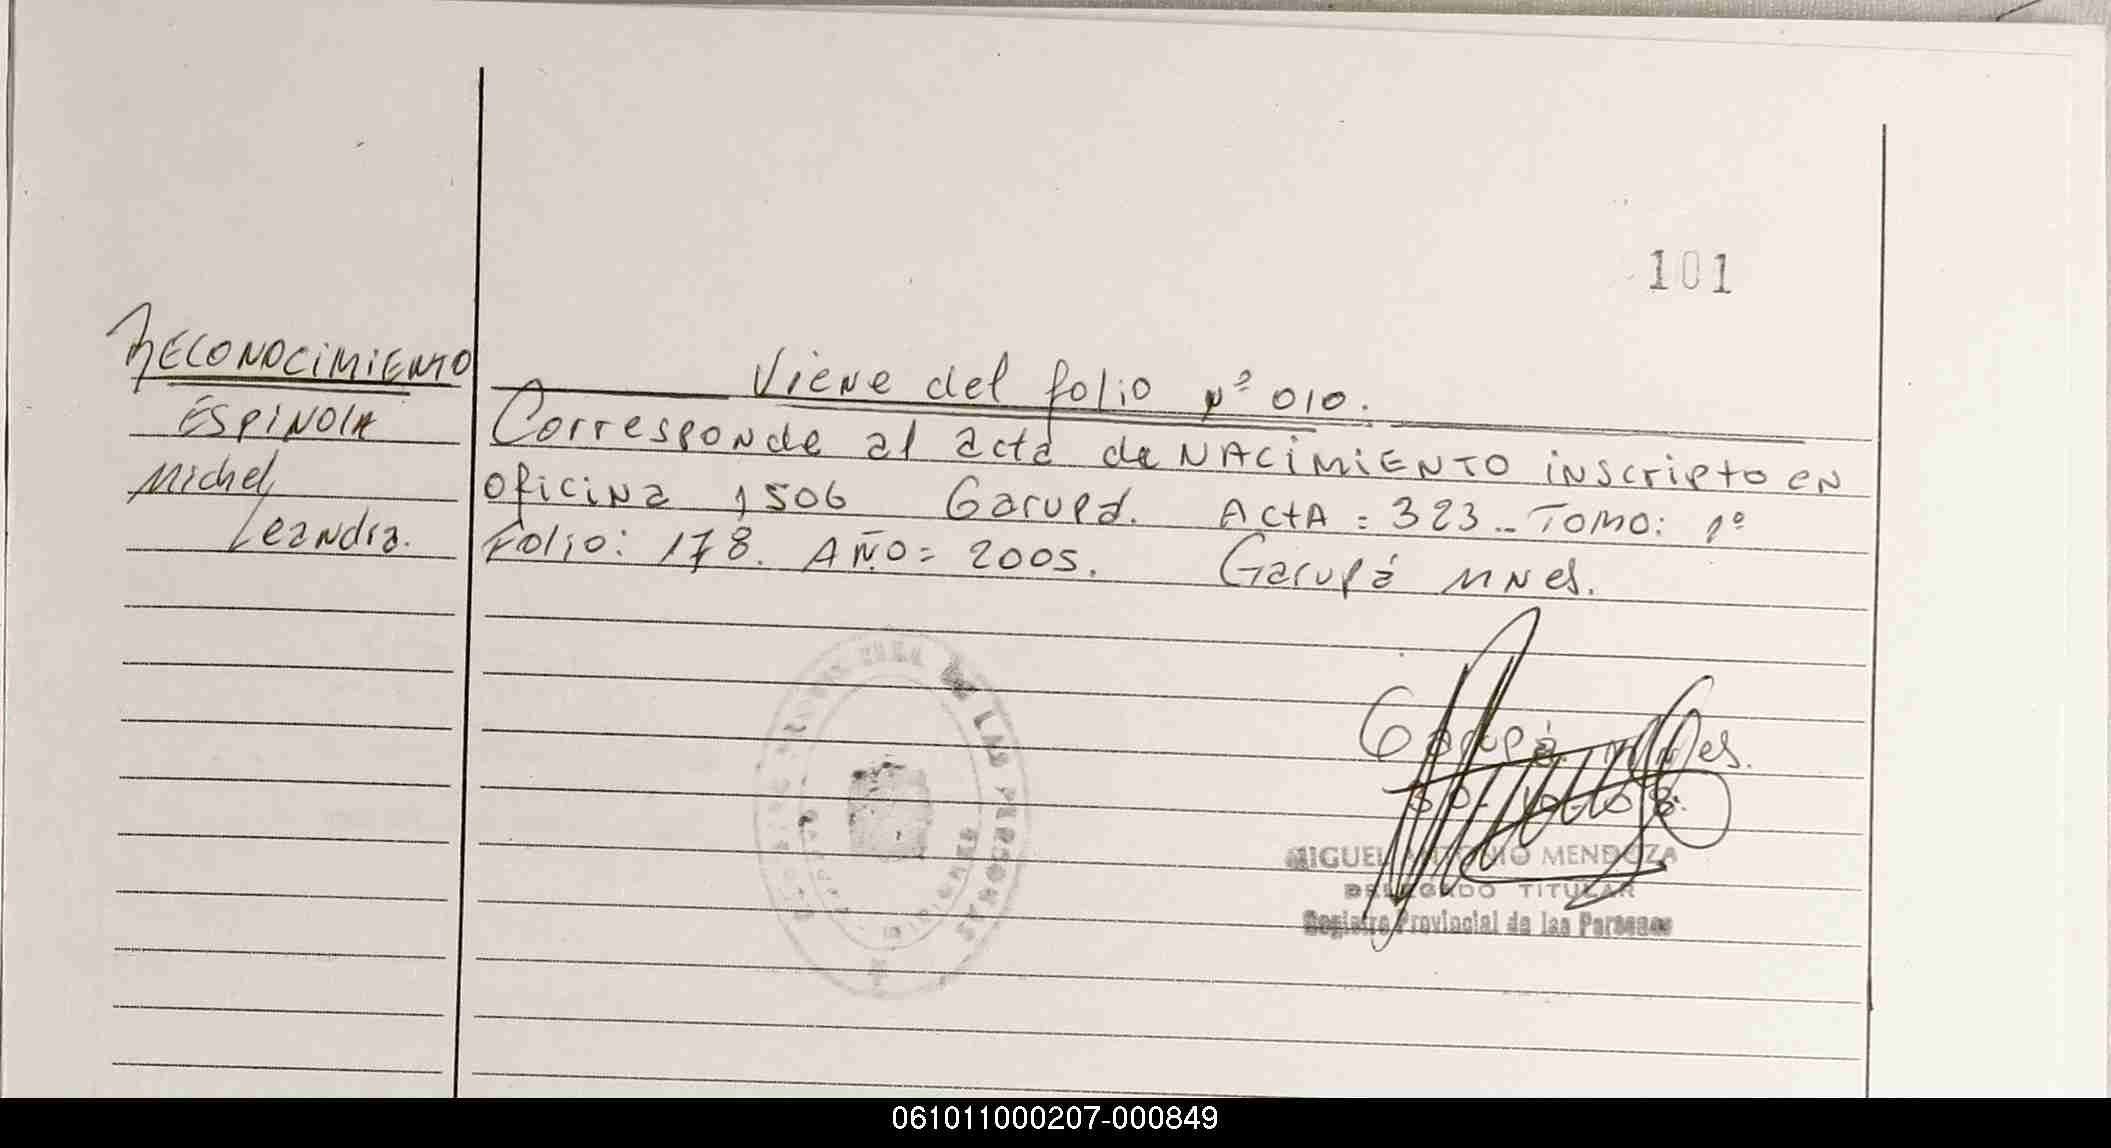 101
RECONOCIMIENTO
ESPINOLA
Michel
Leandra.
Viene del folio Nº 010.
Corresponde al acta de NACIMIENTO inscripto en
oficina 1506 Garupá. ActA: 323.. TOMO: 1º
Folio: 178. AÑO= 2005. Garupá MNes.
Garupá, MNes.
MIGUEL ANTONIO MENDOZA
DELEGADO TITULAR
Registro Provincial de las Personas
DE LAS PERSONAS
061011000207-000849